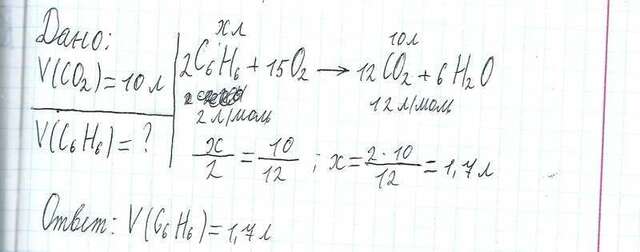 Дано:
V(CO₂)=10 л
V(C₆H₆)=?
x л 10 л
2C₆H₆ + 15O₂ → 12CO₂ + 6H₂O
2
2 л/моль 12 л/моль
x/2 = 10/12 ; x = 2·10/12 = 1,7 л
Ответ: V(C₆H₆)=1,7 л